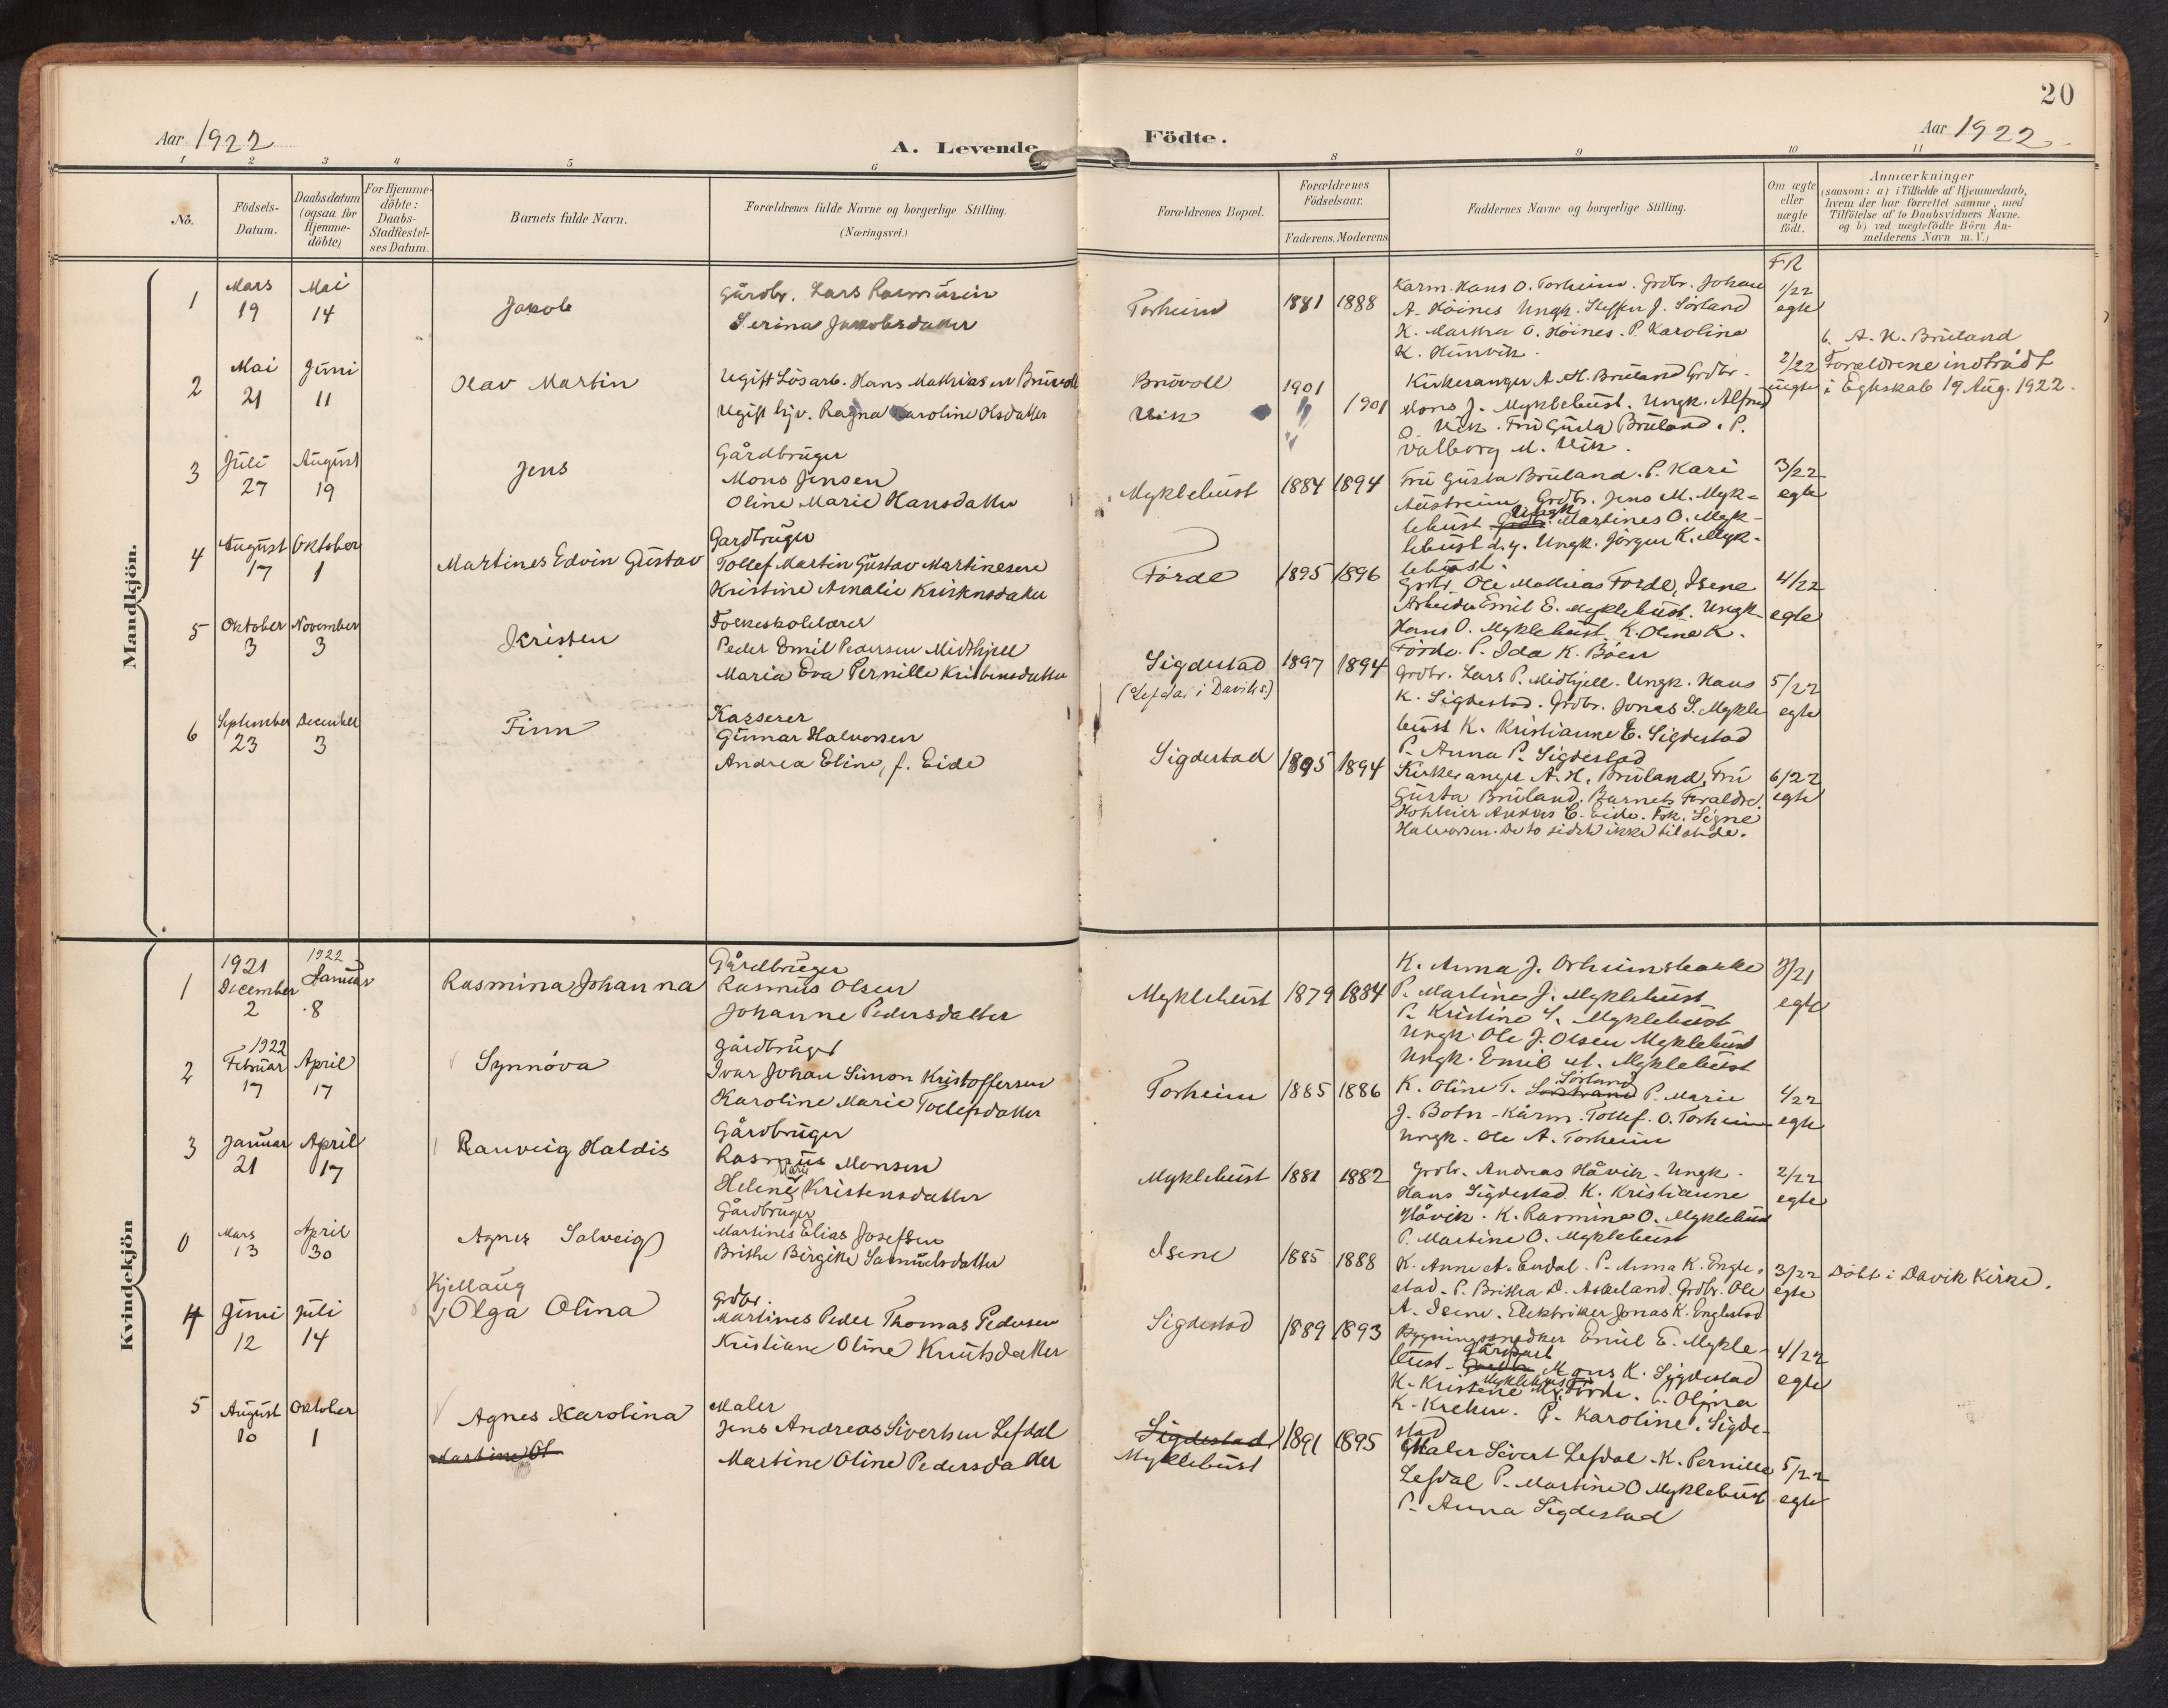 20
Aar 1922
A. Levende
Födte.
Aar 1922.
1 2 3 4 5 6 8 9 10 11
No.
Födsels-
Datum.
Daabsdatum
(ogsaa for
Hjemme-
döbte)
For Hjemme-
döbte:
Daabs-
Stadfæstel-
ses Datum.
Barnets fulde Navn.
Forældrenes fulde Navne og borgerlige Stilling.
(Næringsvei.)
Forældrenes Bopæl.
Forældrenes
Födselsaar.
Faderens. Moderens
Faddernes Navne og borgerlige Stilling.
Om ægte
eller
uægte
födt.
Anmærkninger
(saasom: a) i Tilfælde af Hjemmedaab,
hvem der har forrettet samme, med
Tilföielse af to Daabsvidners Navne.
og b) ved uægtefödte Börn An-
melderens Navn m. V.)
Mandkjön.
1
Mars
19
Mai
14
Jakob
Gårdbr. Lars Rasmusen
Serina Jakobsdatter
Torheim
1881
1888
Kårm. Hans O. Torheim. Grdbr. Johan
A. Höines Ungk. Steffen J. Sörland
K. Martha O. Höines. P. Karoline
K. Hunvik.
FR
1/22
egte
2
Mai
21
Juni
11
Olav Martin
Ugift Lösarb. Hans Mathiasen Bruvoll
Ugift hjv. Ragna Karoline Olsdatter
Bruvoll
Vik
1901
1901
Kirkesanger A. H. Bruland Grdbr.
Mons J. Myklebust. Ungk. Alfred
O. Vik. Fru Gusta Bruland. P.
Valborg M. Vik.
2/22
uegte
b. A. H. Bruland
Foraldrene indtrådt
i Egteskab 19 Aug. 1922.
3
Juli
27
August
19
Jens
Gårdbruger
Mons Jensen
Oline Marie Hansdatter
Myklebust
1884
1894
Fru Gusta Bruland. P. Kari
Austreim Grdbr. Jens M. Myk-
lebust Grdbr. Ungk Martines O. Myk-
lebust d.y. Ungk. Jörgen K. Myk-
lebust.
3/22
egte
4
August
17
Oktober
1
Martines Edvin Gustav
Gardbruger
Tollef Martin Gustav Martinesen
Kristine Amalie Kristensdatter
Förde
1895
1896
Grdbr. Ole Mathias Förde, Isene
Arbeider Emil E. Myklebust. Ungk
Hans O. Myklebust K. Olina K.
Förde. P. Ida K. Böen
4/22
egte
5
Oktober
3
November
3
Kristen
Folkeskolelærer
Peder Emil Pedersen Midthjell
Maria Eva Pernille Kristensdatter
Sigdestad
(Lefdal i Daviks.)
1897
1894
Grdbr. Lars P. Midhjell. Ungk. Hans
K. Sigdestad. Grdbr. Jonas S. Mykle
bust K. Kristianne E. Sigdestad
P. Anna P. Sigdestad
5/22
egte
6
September
23
December
3
Finn
Kasserer
Gunnar Halvorsen
Andrea Eline, f. Eide
Sigdestad
1895
1894
Kirkesanger A. H. Bruland, Fru
Gusta Bruland, Barnets Foraldre.
Anders E. Eide. Frk. Signe
Halvorsen. De to sidste ikke tilstede.
6/22
egte
Kvindekjön
1
1921
December
2
1922
Januar
8
Rasmina Johanna
Gårdbruger
Rasmus Olsen
Johanne Pedersdatter
Myklebust
1879
1884
K. Anna J. Orheimsbakke
P. Martine J. Myklebust
P. Kristine S. Myklebust
Ungk. Ole J. Olsen Myklebust
Ungk. Emil M. Myklebust
7/21
egte
2
1922
Februar
17
April
17
Synnöva
Gårdbruger
Ivar Johan Simon Kristoffersen
Karoline Marie Tollefsdatter
Torheim
1885
1886
K. Oline T. Sörstrand Sörland P. Marie
J. Botn - Kårm. Tollef. O. Torheim
Ungk. Ole A. Torheim
1/22
egte
3
Januar
21
April
17
Ranveig Haldis
Gårdbruger
Rasmus Monsen
Helene Marie Kristensdatter
Myklebust
1881
1882
Grdbr. Andreas Håvik - Ungk.
Hans Sigdestad. K. Kristianne
Håvik. K. Rasmine O. Myklebust
P. Martine O. Myklebust
2/22
egte
0
Mars
13
April
30
Agnes Solveig
Gårdbruger
Martines Elias Josefsen
Brithe Birgitte Samuelsdatter
Isene
1885
1888
K. Anne A. Endal. P. Anna K. Engle-
stad. P. Britha D. Askeland. Grdbr. Ole
A. Isene. Elektriker Jonas K. Englestad
3/22
egte
Döbt i Davik Kirke.
4
Juni
12
Juli
14
Kjellaug
Olga Olina
Grdbr.
Martines Peder Thomas Pedersen
Kristiane Oline Knutsdatter
Sigdestad
1889
1893
Bygningssnedker Emil E. Mykle-
bust - Gårdarb Mons K. Sigdestad
K. Kristene Myklebust Förde. Olina
K. Kreken. P. Karoline. Sigde-
stad
4/22
egte
5
August
10
Oktober
1
Agnes Karolina
Martine Ol
Maler
Jens Andreas Sivertsen Lefdal
Martine Oline Pedersdatter
Sigdestad
Myklebust
1891
1895
Maler Sivert Lefdal - K. Pernille
Lefdal P. Martine O Myklebust
P. Anna Sigdestad
5/22
egte